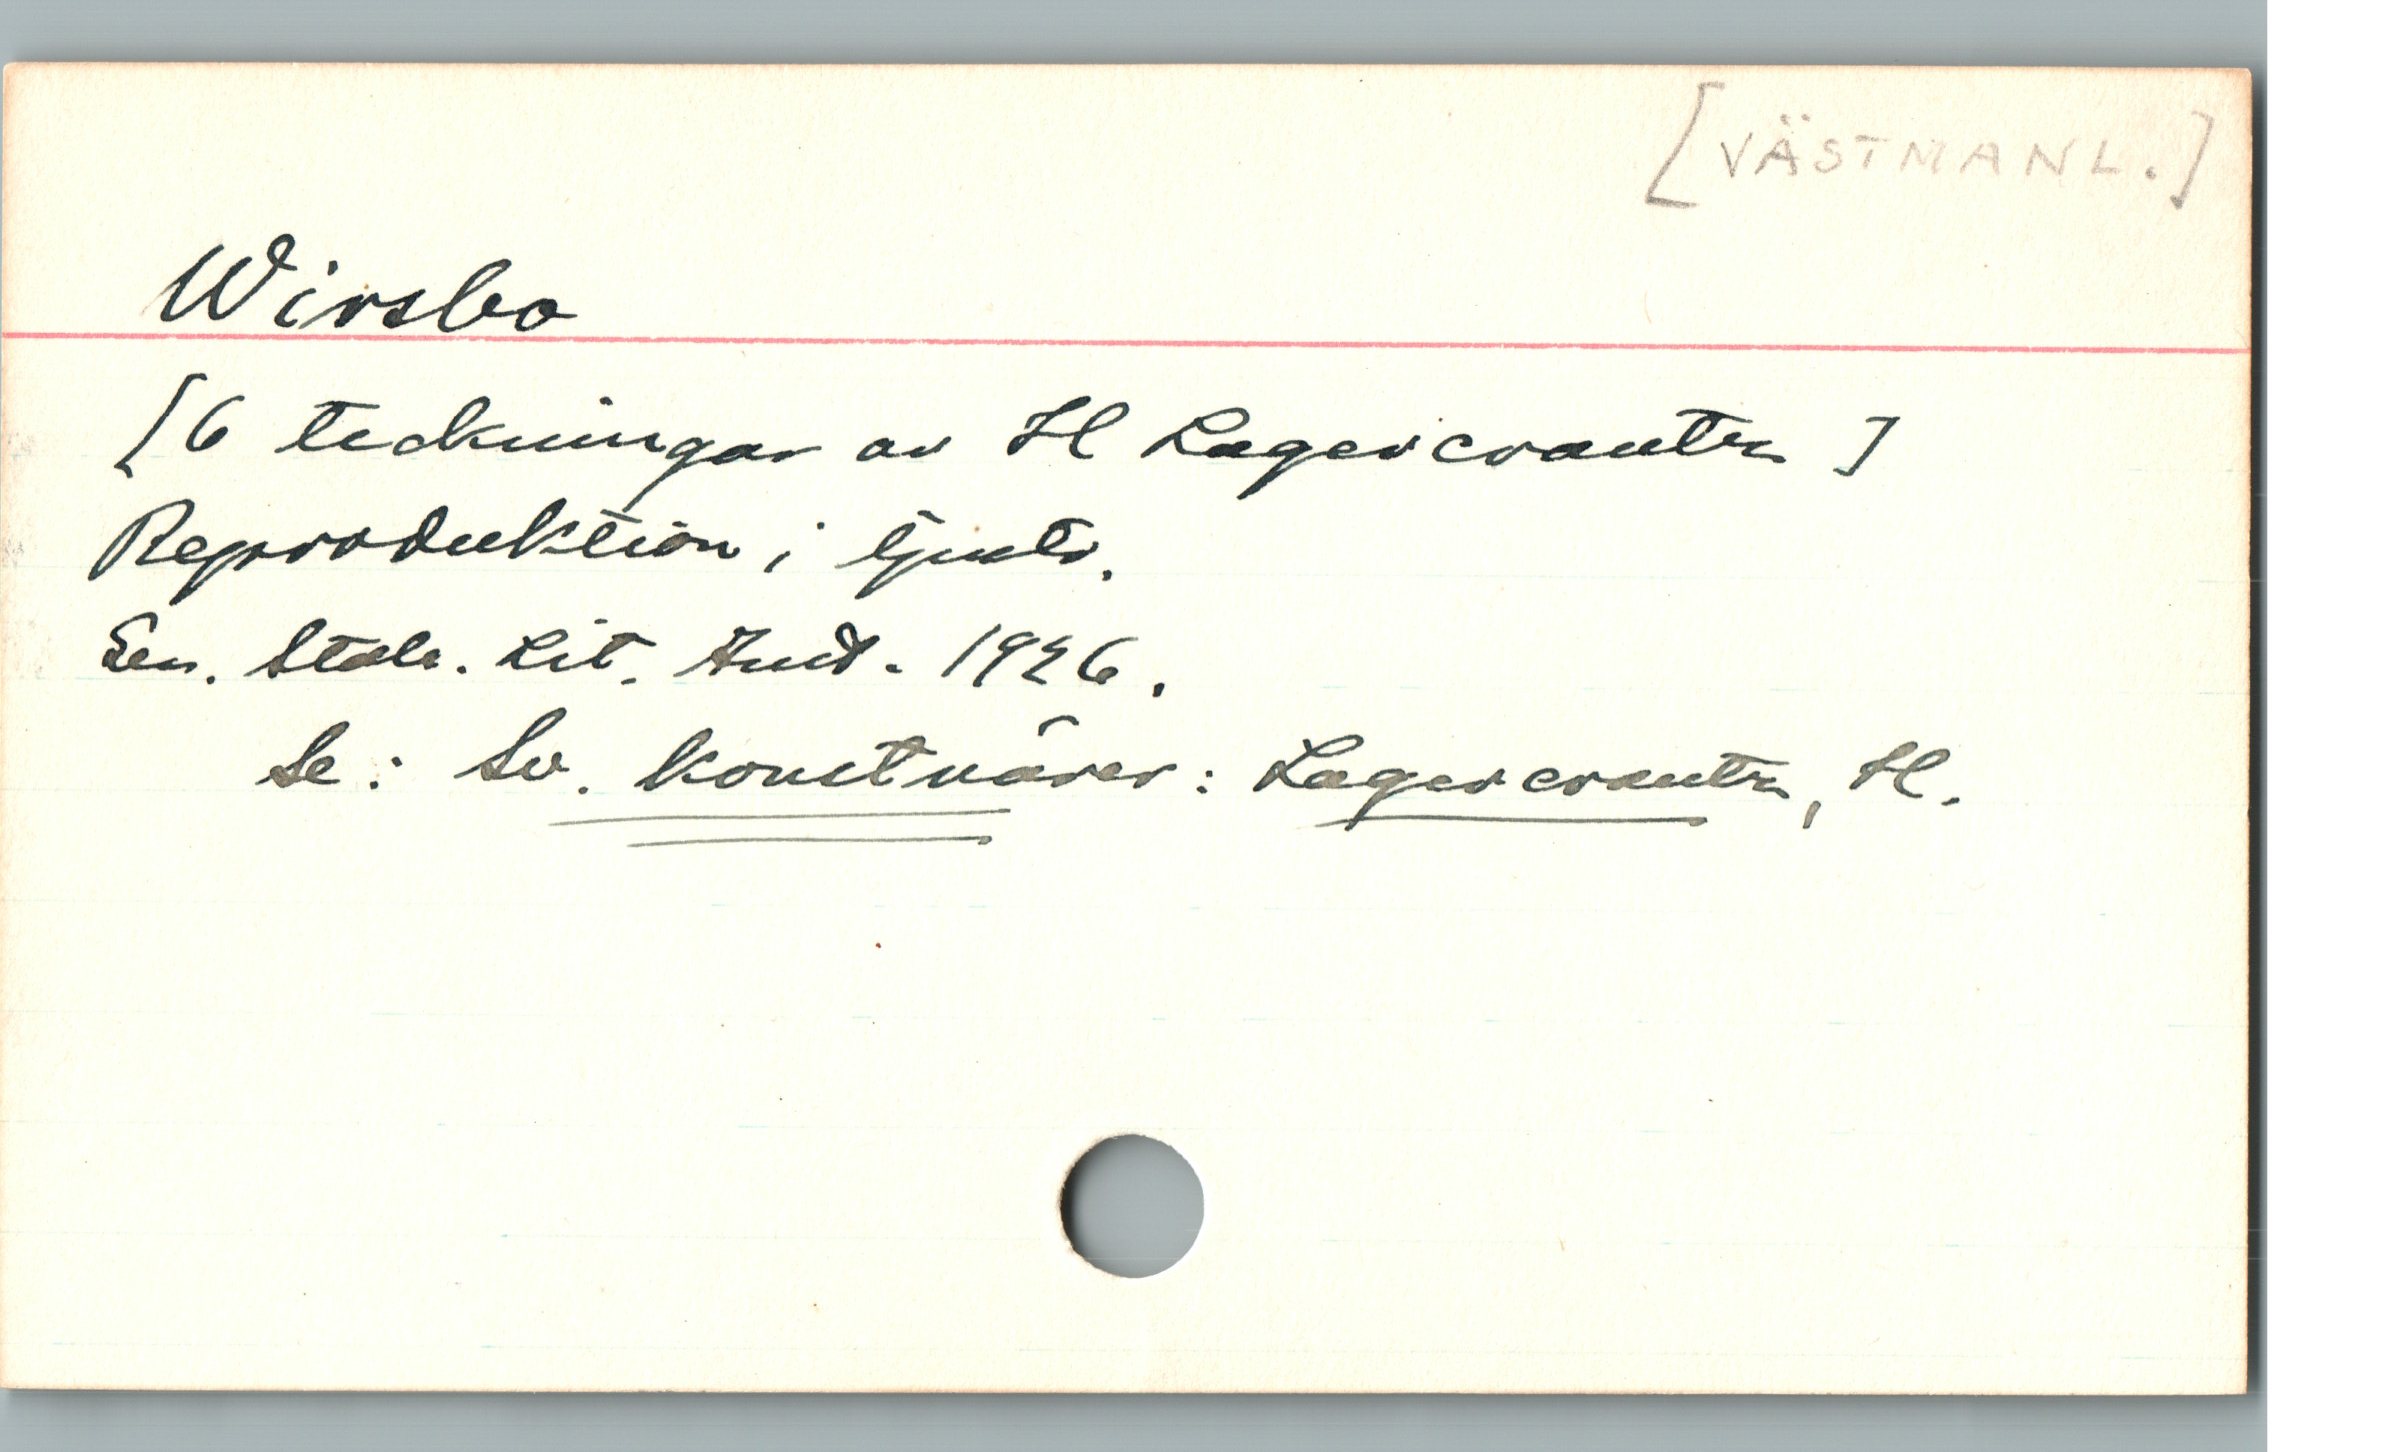 [VÄSTMANL.]
Wirsbo
[6 teckningar av H Lagercrantz]
Reproduktion i ljustr.
Gen. Stab. Lit. Anst. 1926.
Se: Sv. konstnärer: Lagercrantz, H.